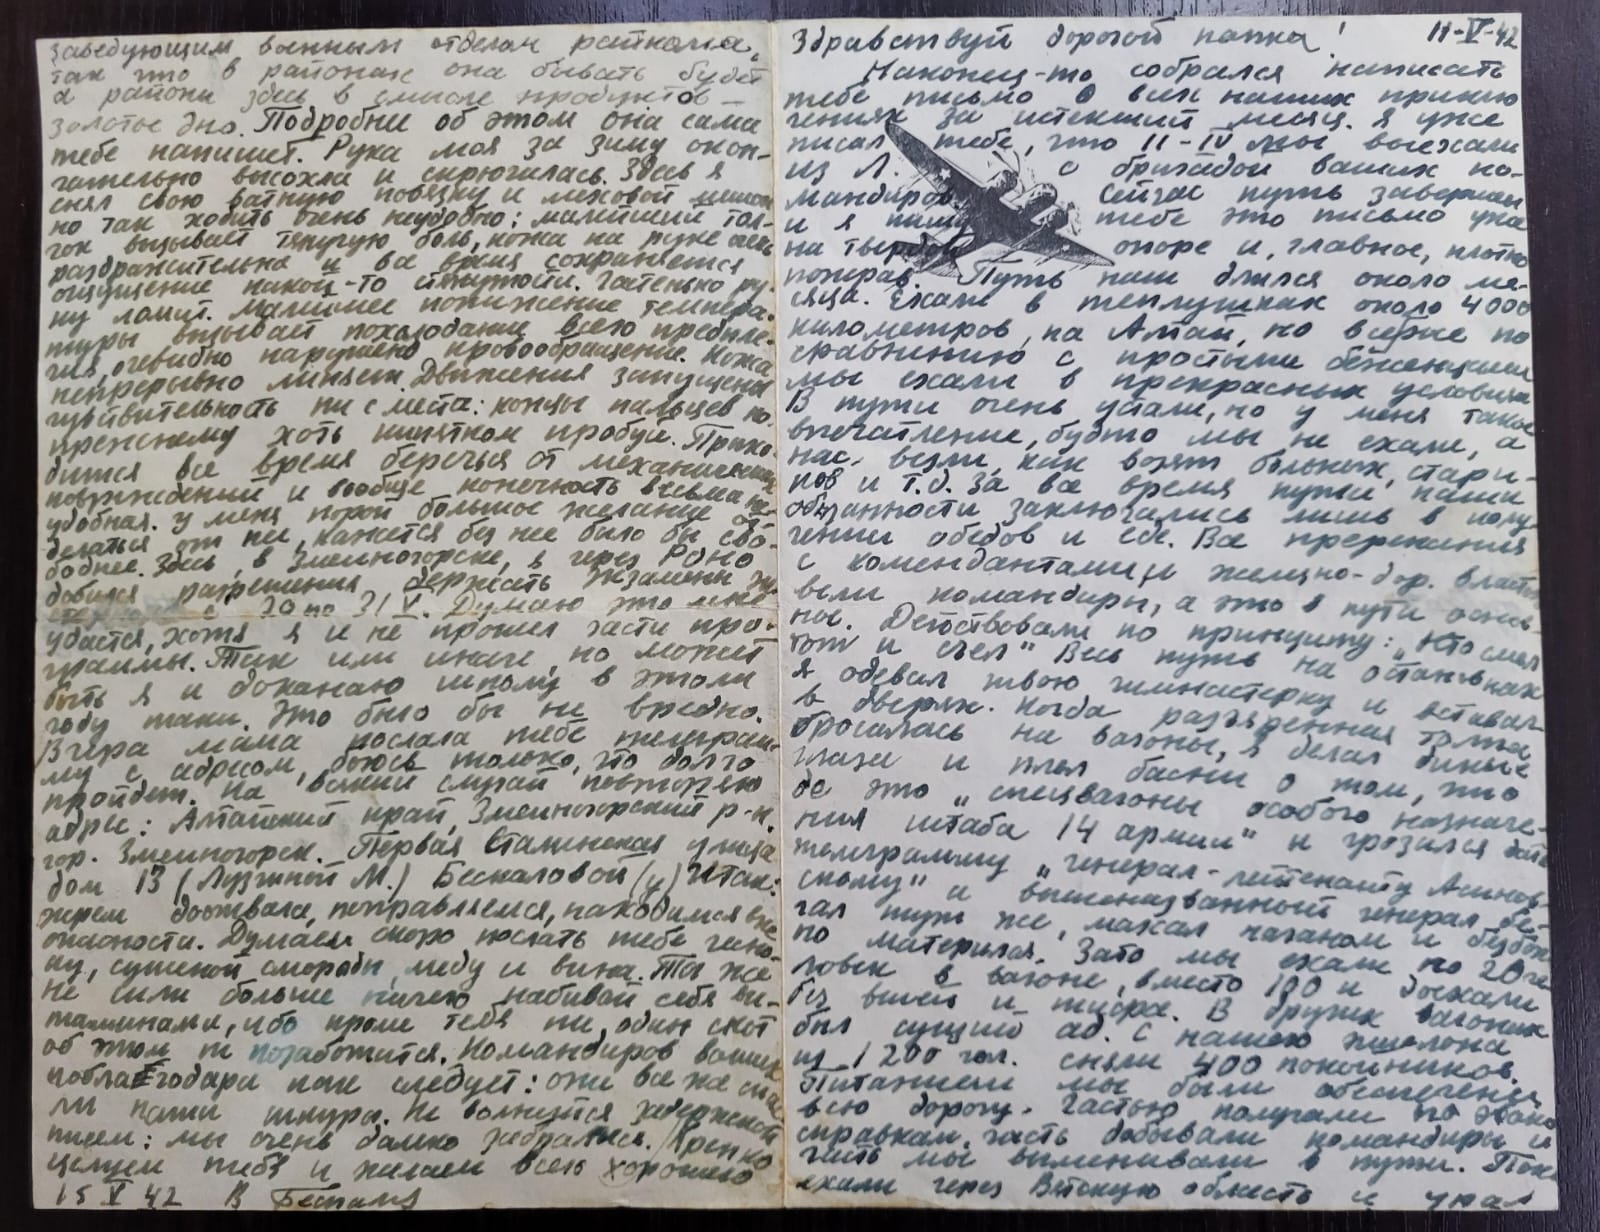 Здравствуй дорогой папка! 11-V-42
Наконец-то собрался написать
тебе письмо о всех наших приклю
чениях за истекший месяц. Я уже
писал тебе, что 11-IV мы выехали
из Л. с бригадой ваших ко-
мандиров. Сейчас путь завершен
и я пишу тебе это письмо уже
на твердой опоре и, главное, плотно
пожрав. Путь наш длился около ме-
сяца. Ехали в теплушках около 4000
километров, на Алтай, но все же по
сравнению с простыми беженцами
мы ехали в прекрасных условиях
В пути очень устали, но у меня такое
впечатление, будто мы не ехали, а
нас везли, как возят больных, стари-
ков и т.д. За все время пути наши
обязанности заключались лишь в полу
чении обедов и еде. Все пререкания
с комендантами и железно-дор. властью
вели командиры, а это в пути основ-
ное. Действовали по принципу: „Кто смел
тот и съел" Весь путь на остановках
я одевал твою гимнастерку и вставал
в дверях. Когда разъяренная толпа
бросалась на вагоны, я делал дикие
глаза и плел басни о том, что
де это „спецвагоны особого назначе-
ния штаба 14 армии" и грозился дать
телеграмму „генерал-лейтенанту
скому" и вышеназванный генерал бе-
гал тут же, махал наганом и безбож
но матерился. Зато мы ехали по 20 че
ловек в вагоне, вместо 100 и доехали
без вшей и тифа. В других вагонах
был сущий ад. С нашего эшелона
из 1200 чел. сняли 400 покойников.
Питанием мы были обеспечены
всю дорогу. Частью получали по эвако
справкам, часть добывали командиры и
часть мы выменивали в пути. Пока
ехали через Вятскую область и
заведующим военным отделом райкома,
так что в районах она бывать будет
а районы здесь в смысле продуктов —
золотое дно. Подробнее об этом она сама
тебе напишет. Рука моя за зиму окон-
чательно высохла и скрючилась. Здесь я
снял свою ватную повязку и меховой
но так ходить очень неудобно: малейший тол-
чок вызывает тягучую боль, кожа на руке очень
раздражительна и все время сохраняется
ощущение какой-то стянутости. Частенько ру-
ку ломит. Малейшее понижение темпера-
туры вызывает похолодание всего предпле-
чия, очевидно нарушено кровообращение. Кожа
непрерывно линяет. Движения запущены
чувствительность ни с места: концы пальцев по
прежнему хоть кипятком пробуй. Прихо-
дится все время беречься от механических
повреждений и вообще конечность весьма не-
удобная. У меня порой большое желание от-
делаться от нее, кажется без нее было бы сво-
боднее. Здесь, в Змеиногорске, я через Роно
добился разрешения держать экзамены
с 20 по 31 V. Думаю это мне
удастся, хотя я и не прошел части про-
граммы. Так или иначе, но может
быть я и доканаю школу в этом
году таки. Это было бы не вредно.
Вчера мама послала тебе телеграм
му с адресом, боюсь только, что долго
пройдет. На всякий случай повторяю
адрес: Алтайский край, Змеиногорский р-н.
гор. Змеиногорск. Первая Сталинская улица
дом 13 (Лузгиной М.) Беспаловой (у) Итак:
жрем доотвала, поправляемся, находимся вне
опасности. Думаем скоро послать тебе чесно-
ку, сушеной смороды, меду и вина. Ты же
не сили больше ничего набивай себя ви-
таминами, ибо кроме тебя ни один скот
об этом не позаботится. Командиров ваших
поблагодари как следует: они все же спас
ли наши шкуры. Не волнуйся задержкой
писем: мы очень далеко забрались. Крепко
целуем тебя и желаем всего хорошего
15 V 42 В Беспалов